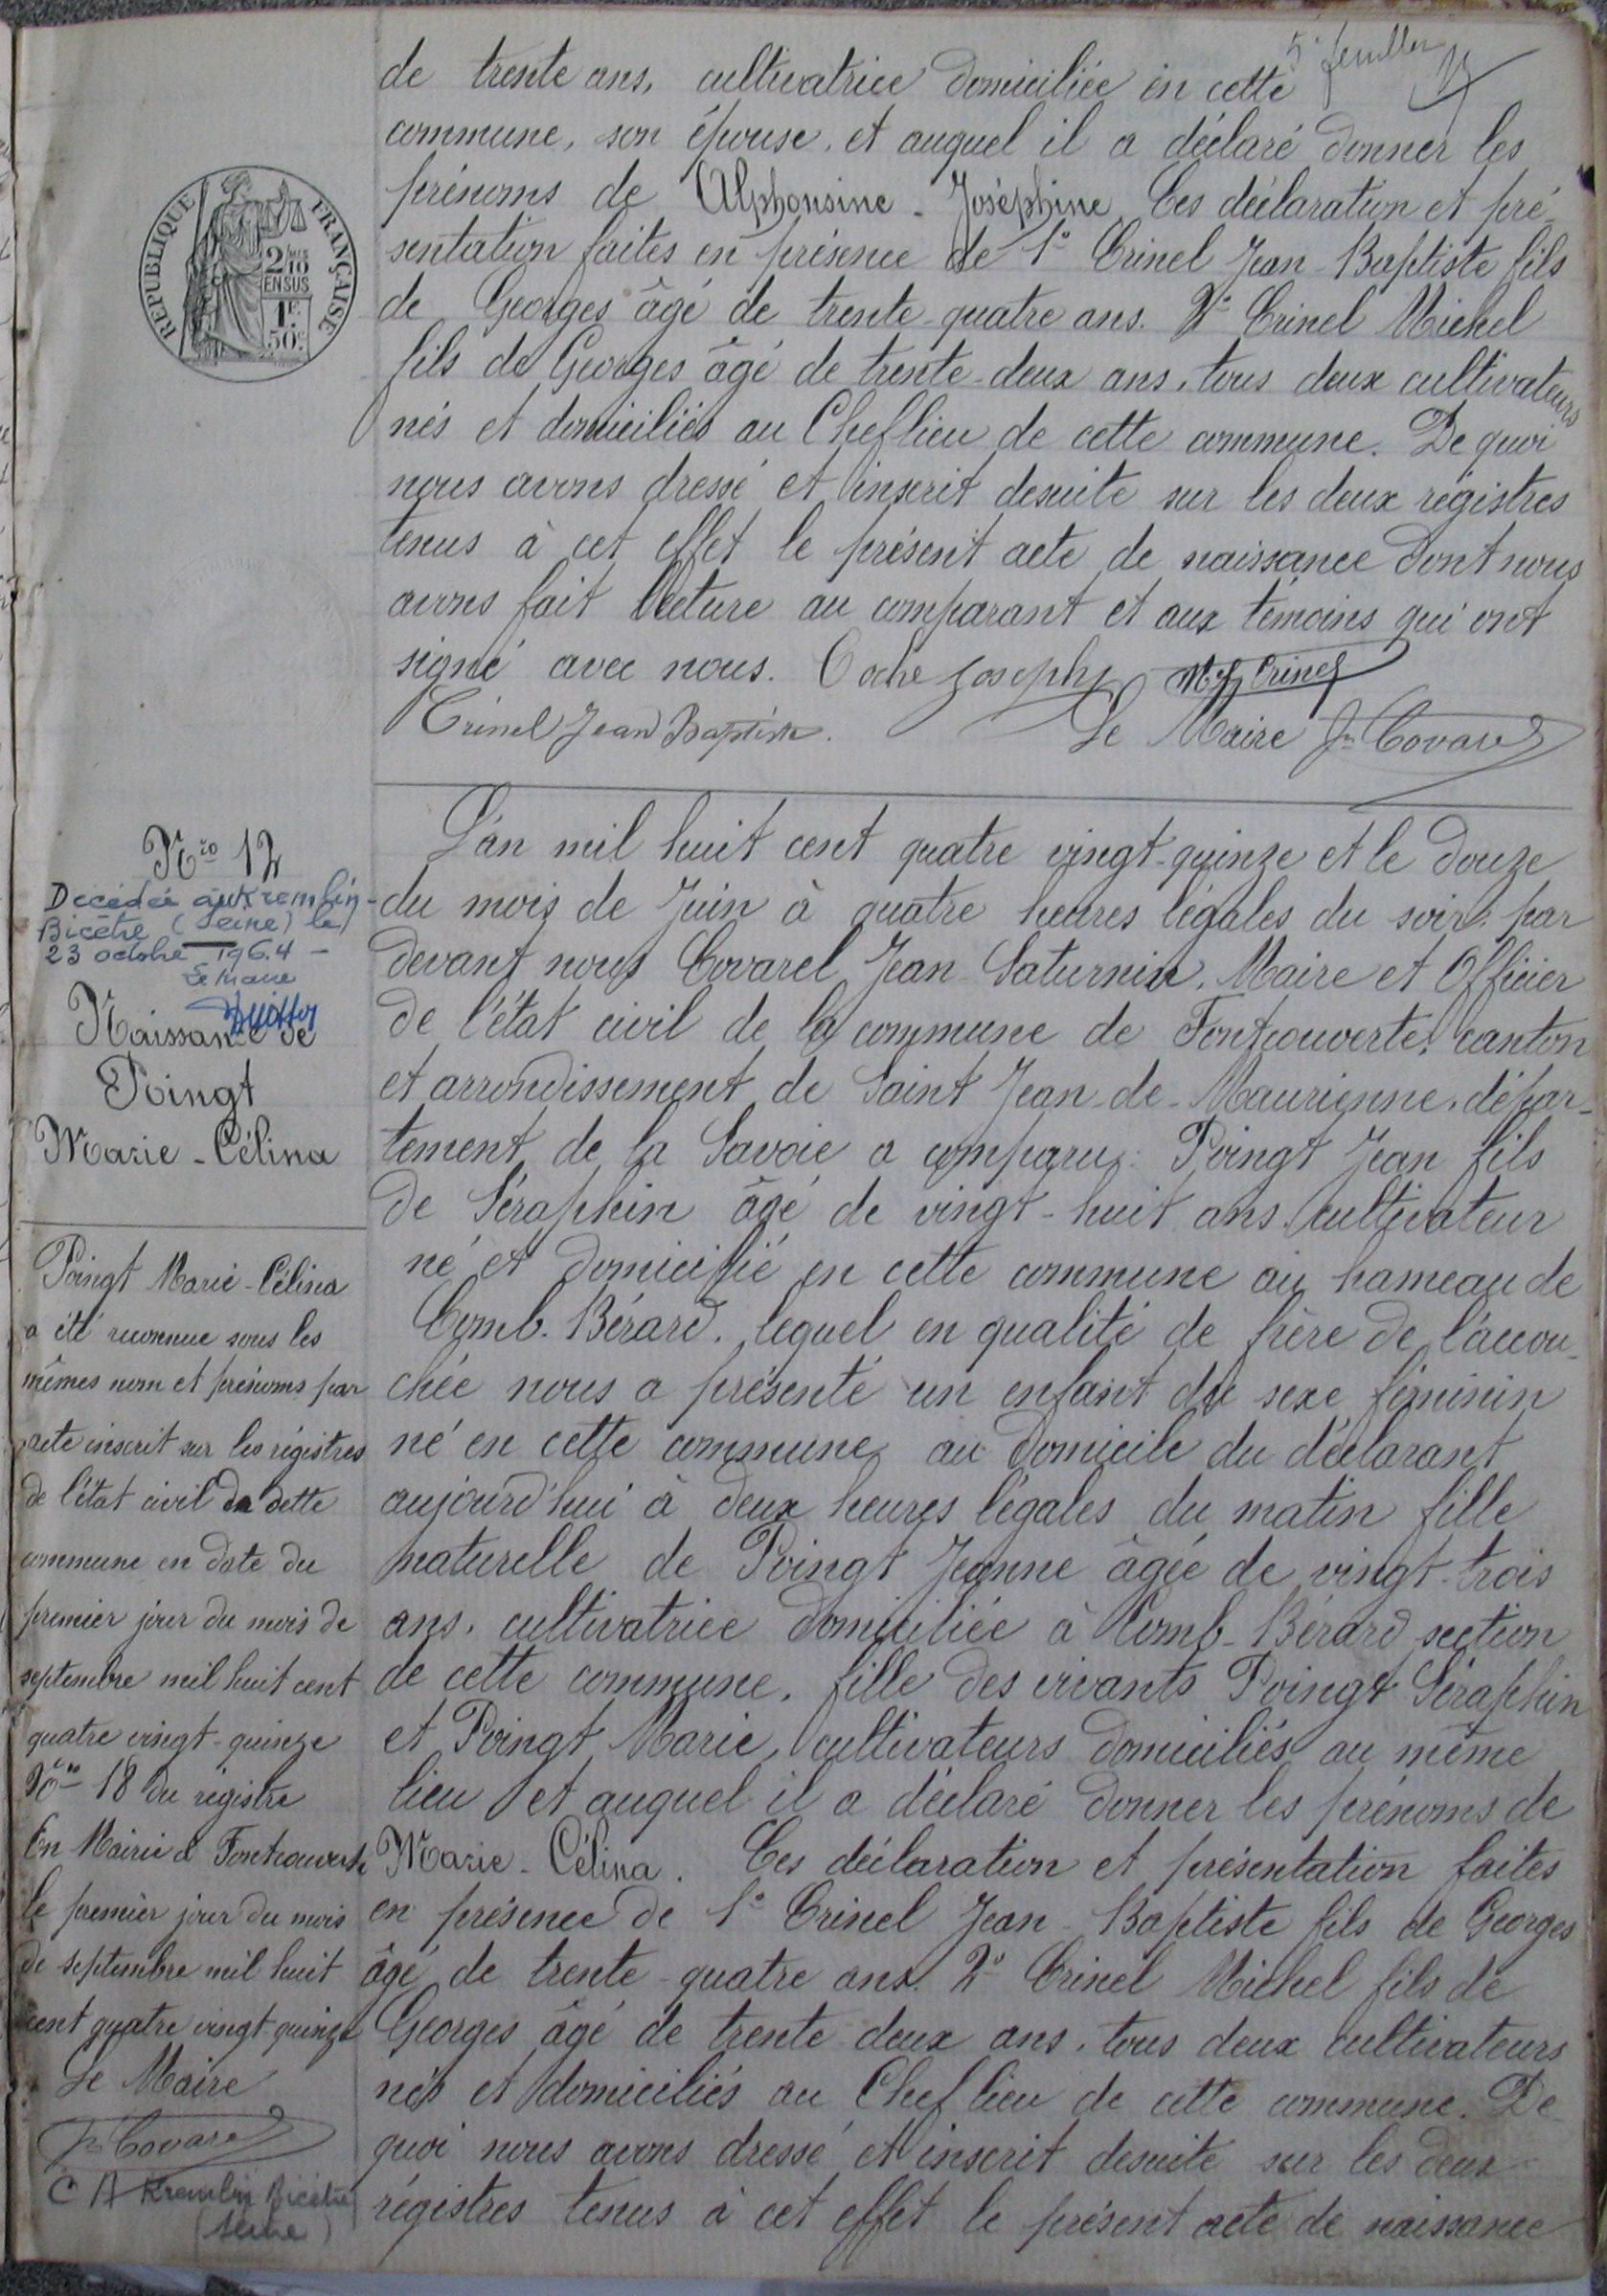 5e feuillet
de trente ans, cultivatrice domiciliée en cette
commune, son épouse, et auquel il a déclaré donner les
prénoms de Alphonsine - Joséphine. Ces déclaration et pré-
sentation faites en présence de 1° Crinel Jean-Baptiste fils
de Georges âgé de trente-quatre ans. 2° Crinel Michel
fils de Georges âgé de trente-deux ans, tous deux cultivateurs
nés et domiciliés au Cheflieu de cette commune. De quoi
nous avons dressé et inscrit desuite sur les deux régistres
tenus à cet effet le présent acte de naissance dont nous
avons fait lecture au comparant et aux témoins qui ont
signé avec nous. Coche Joseph Mel Crinel
Crinel Jean Baptiste. Le Maire Jn Covarel
REPUBLIQUE FRANÇAISE
2/10
EN SUS
1F.
50c
Nro 12
Décédée au Kremlin-
Bicêtre (Seine) le
23 octobre 1964 -
Le Maire
Naissance de
Poingt
Marie - Célina
Poingt Marie-Célina
a été reconnue sous les
mêmes nom et prénoms par
acte inscrit sur les régistres
de l'état civil de cette
commune en date du
premier jour du mois de
septembre mil huit cent
quatre vingt-quinze
Nro 18 du régistre
En Mairie de Fontcouverte
le premier jour du mois
de septembre mil huit
cent quatre vingt-quinze
Le Maire
Jn Covarel
C A Kremlin Bicêtre
(Seine)
L'an mil huit cent quatre vingt-quinze et le douze
du mois de Juin à quatre heures légales du soir, par
devant nous Covarel Jean Saturnin, Maire et Officier
de l'état civil de la commune de Fontcouverte, canton
et arrondissement de Saint Jean-de-Maurienne, dépar-
tement de la Savoie a comparu: Poingt Jean fils
de Séraphin âgé de vingt-huit ans cultivateur
né et domicilié en cette commune au hameau de
Comb-Bérard, lequel en qualité de frère de l'accou-
chée nous a présenté un enfant du sexe féminin
né en cette commune au domicile du déclarant
aujourd'hui à deux heures légales du matin fille
naturelle de Poingt Jeanne âgée de vingt-trois
ans, cultivatrice domiciliée à Comb-Bérard section
de cette commune, fille des vivants Poingt Séraphin
et Poingt Marie, cultivateurs domiciliés au même
lieu et auquel il a déclaré donner les prénoms de
Marie-Célina. Ces déclaration et présentation faites
en présence de 1° Crinel Jean-Baptiste fils de Georges
âgé de trente-quatre ans. 2° Crinel Michel fils de
Georges âgé de trente deux ans, tous deux cultivateurs
nés et domiciliés au Cheflieu de cette commune. De
quoi nous avons dressé et inscrit desuite sur les deux
régistres tenus à cet effet le présent acte de naissance